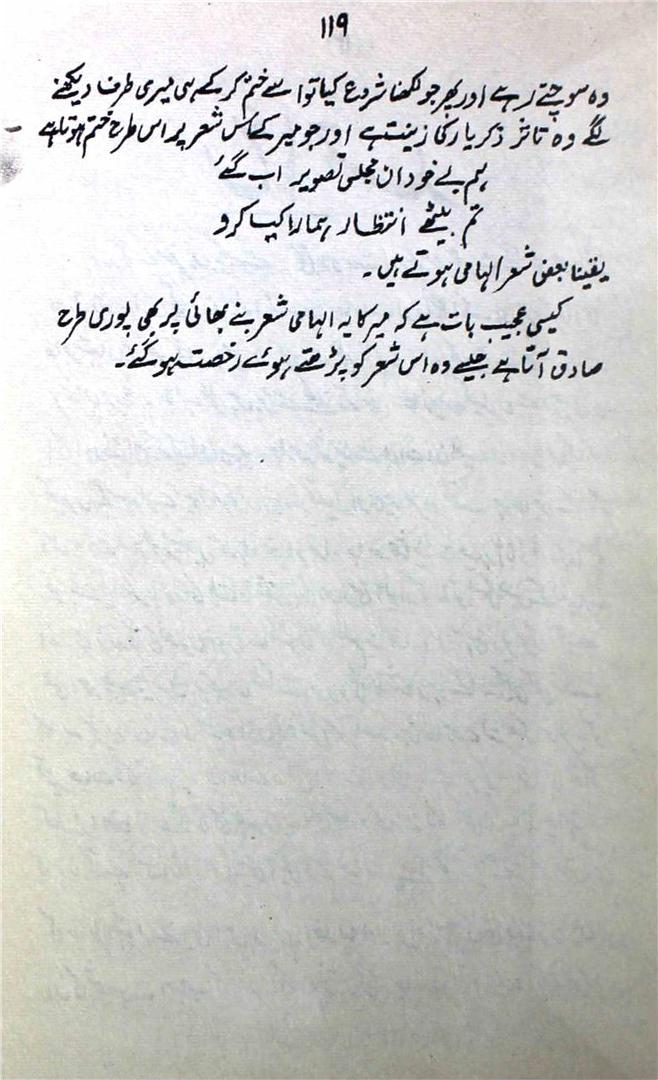 ۱۱۹
وہ سوچتے رہے اور پھر جو لکھنا شروع کیا تو اسے ختم کر کے ہی میری طرف دیکھنے
لگے وہ تاثر ذکر یار کا زینت ہے اور جو میر کے اس شعر پر اس طرح ختم ہوتا ہے
ہم بے خودان محفل تصویر اب گئے
تم بیٹھے انتظار ہمارا کیا کرو
یقینا بعض شعر الہامی ہوتے ہیں۔
کیسی عجیب بات ہے کہ میر کا یہ الہامی شعر بنے بھائی پر بھی پوری طرح
صادق آتا ہے جیسے وہ اس شعر کو پڑھتے ہوئے رخصت ہو گئے۔